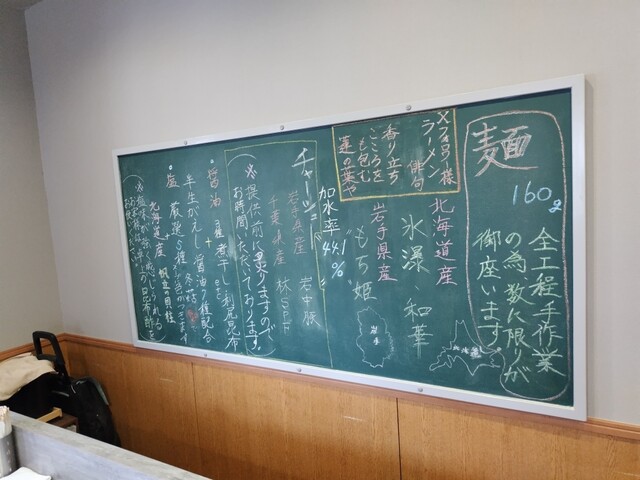 麺
160g
全工程手作業
の為数に限りが
御座います
Xフォロワー様
ラーメン
俳句
香り立ち
こころを
も包む
蓮の葉や
北海道産
氷瀑・和華
岩手県産
もち姫
岩手
北海道
加水率
44.1%
チャーシュー
岩手県産 岩中豚
千葉県産 林SPF
(※提供前に炙りますので
お時間いただいております)
醤油 煮干し+利尻昆布
半生かえし 醤油7種配合
塩 厳選5種
北海道産 帆立の貝柱